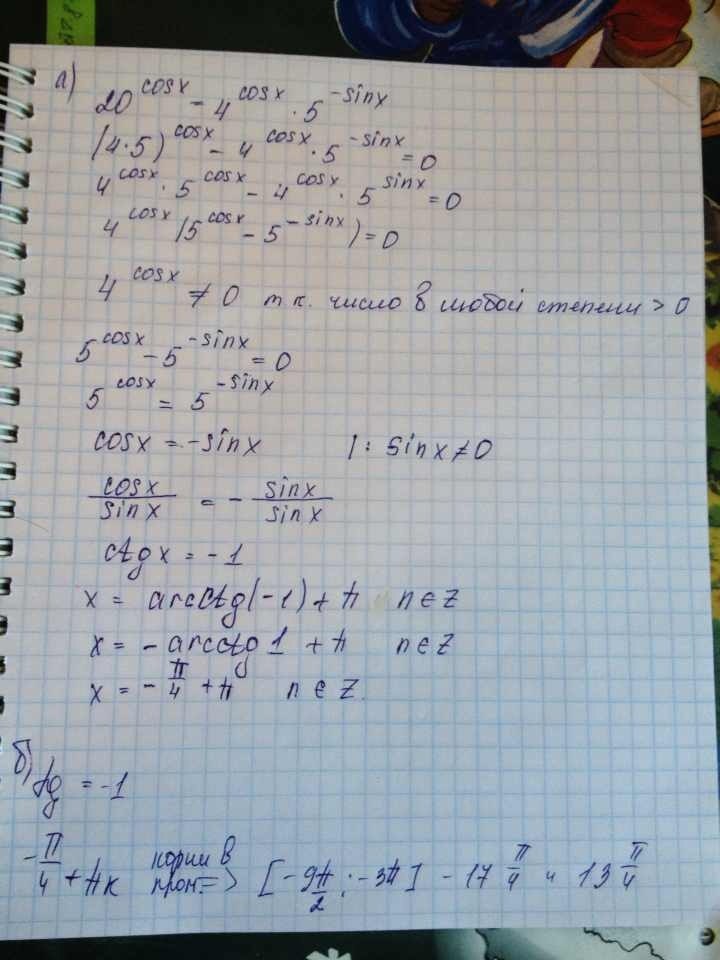 а)
20^cosx - 4^cosx · 5^-sinx
(4·5)^cosx - 4^cosx · 5^-sinx = 0
4^cosx · 5^cosx - 4^cosx · 5^sinx = 0
4^cosx (5^cosx - 5^-sinx) = 0
4^cosx ≠ 0 т.к. число в любой степени > 0
5^cosx - 5^-sinx = 0
5^cosx = 5^-sinx
cosx = -sinx |: sinx ≠ 0
cosx/sinx = - sinx/sinx
ctgx = -1
x = arcctg(-1) + π n∈Z
x = -arcctg1 + π n∈Z
x = -π/4 + π n∈Z.
б)
tg = -1
-π/4 + πк корни в пром. => [-9π/2; -3π] -17 π/4 и 13 π/4